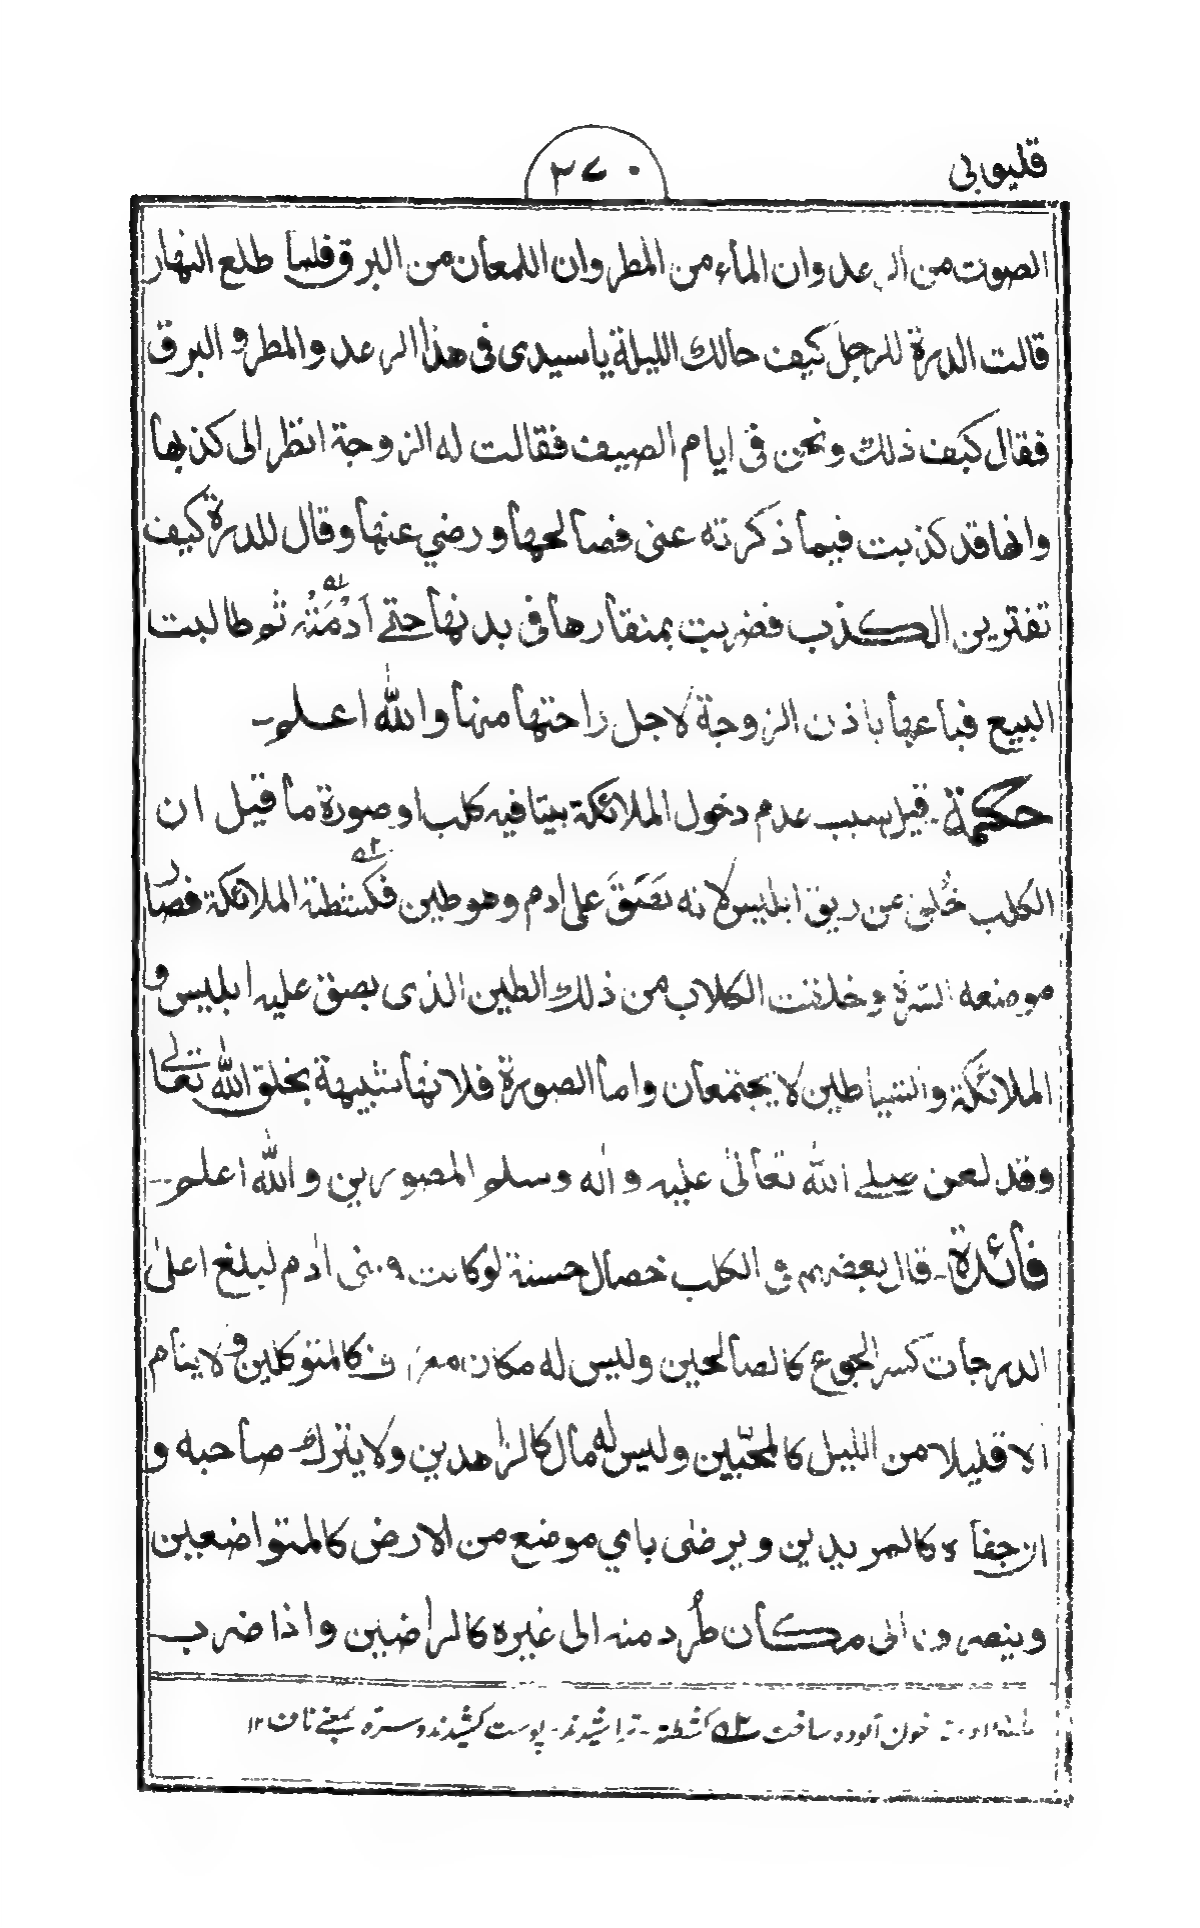 قليوبي
٢٧٠
الصوت من الرعد وان الماء من المطر وان اللمعان من البرق فلما طلع النهار
قالت الدرة للرجل كيف حالك الليلة يا سيدى فى هذا الرعد والمطر و البرق
فقال كيف ذلك ونحن فى ايام الصيف فقالت له الزوجة انظر الى كذبها
وانها قد كذبت فيما ذكرته عنى فصالحها ورضي عنها وقال للدرة كيف
تفترين الكذب فضربت بمنقارها فى بدنها حتے اَدْمَتْهُ ثم طالبت
البيع فباعها باذن الزوجة لاجل راحتها منها والله اعلم۔
حكمة۔ قيل سبب عدم دخول الملائكة بيتا فيه كلب او صورة ما قيل ان
الكلب خُلق عن ريق ابليس لانه بَصَقَ على ادم وهو طين فكشطته الملائكة فصار
موضعه السرة و خلقت الكلاب من ذلك الطين الذى بصق عليه ابليس و
الملائكة والشياطين لا يجتمعان واما الصورة فلانها شبيهة بخلق الله تعالے
وقد لعن صلے الله تعالىٰ عليه و اٰله وسلم المصورين والله اعلم۔
فائدة۔ قال بعضهم فى الكلب خصال حسنة لو كانت فى بنى اٰدم لبلغ اعلىٰ
الدرجات كسر الجوع كالصالحين وليس له مكان معرف كالمتوكلين و لا ينام
الا قليلا من الليل كالمحبّين وليس له مال كالزاهدين ولا يترك صاحبه و
ان جفاء كالمريدين و يرضى باي موضع من الارض كالمتواضعين
وينصرون الى مكان طُرد منه الى غيره كالراضين واذا ضرب
خون آلوده ساخت ۵۲ كشطته۔ تراشيدند۔ پوست كشيدند و سرّه بمعنے ناف ۱۲